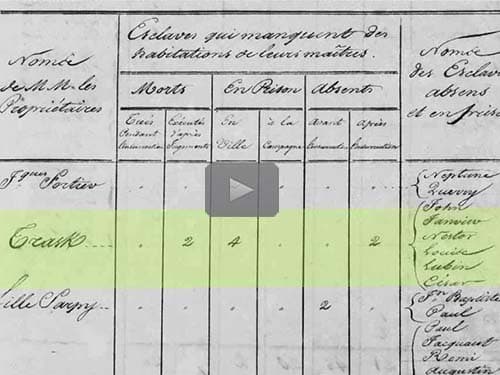 Esclaves qui manquent des
habitations de leurs maîtres.
Noms
de M M. les
Propriétaires
Morts En Prison Absents
Tués Exécutés En à la Avant Après
Pendant d'après Ville Campagne
Insurrection Jugements Insurrection Insurrection
Noms
des Escla
absens
et en priso
Jques Fortier
Neptune
Trask 2 4 2
John
Janvier
Nestor
Louise
Lubin
César
2
Jn Baptiste
Paul
Paul
Jacquant
Remi
Augustin